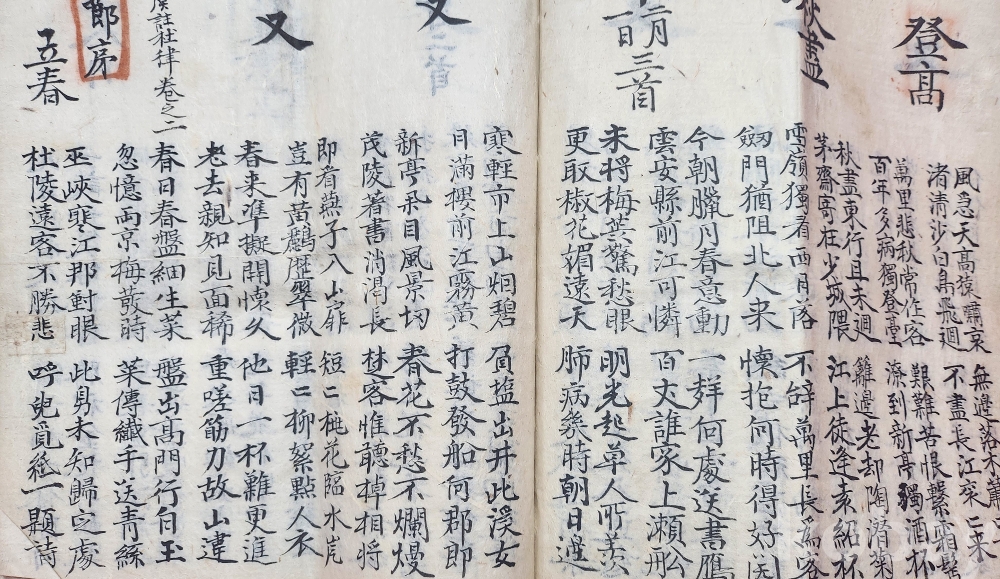 登髙
風急天髙猿嘯哀 無邊落木蕭
渚清沙白鳥飛廻 不盡長江衮二来
萬里悲秋常作客 艱難苦恨繁霜鬂
百年多病獨登臺 潦到新亭獨酒杯
秋盡
秋盡東行且未迴 籬邊老却陶潜菊
茅齋寄在少城隈 江上徒逢袁紹杯
雪嶺獨看西日落 不辞萬里長爲客
劔門猶阻北人来 懐抱何時得好
二月一日三首
今朝臘月春意動 一群何處送書鴈
雲安縣前江可憐 百丈誰家上瀬船
未将梅蕊驚愁眼 明光起草人所羡
更取椒花媚遠天 肺病幾時朝日邊
又二首
寒輕市上山烟碧 負塩出井此溪女
日滿樓前江霧黄 打鼓發船何郡郎
新亭舉目風景切 春花不愁不爛熳
茂陵著書消渇長 楚客惟聽棹相将
又
即看燕子入山扉 短二桃花臨水岸
豈有黄鸝歴翠微 輕二柳絮點人衣
春来準擬開懐久 他日一杯難更進
老去親知見面稀 重嗟筋力故山違
虞註杜律卷之二
節序
立春
春日春盤細生菜 盤出髙門行白玉
忽憶両京梅發時 菜傳纖手送青絲
巫峽寒江那對眼 此身未知歸定處
杜陵遠客不勝悲 呼兒覓紙一題詩